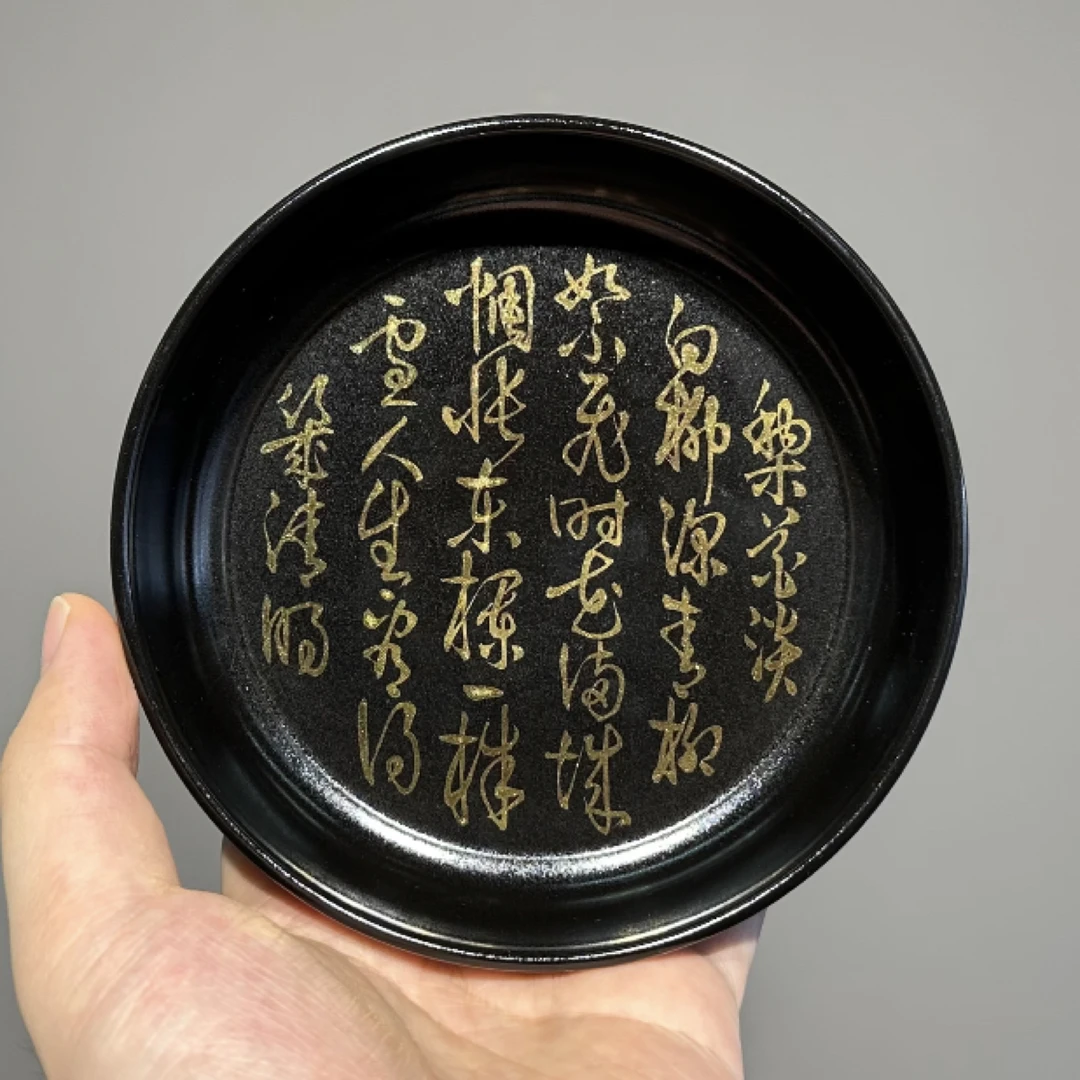 梨花淡
白柳深青柳
絮飞时花满城
惆怅东栏一株
雪人生看得
幾清明